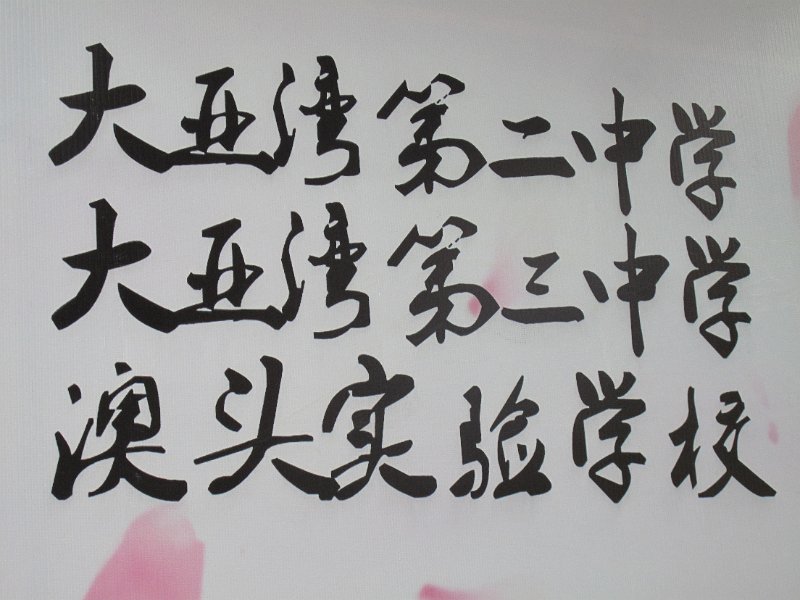 大亚湾第二中学
大亚湾第三中学
澳头实验学校